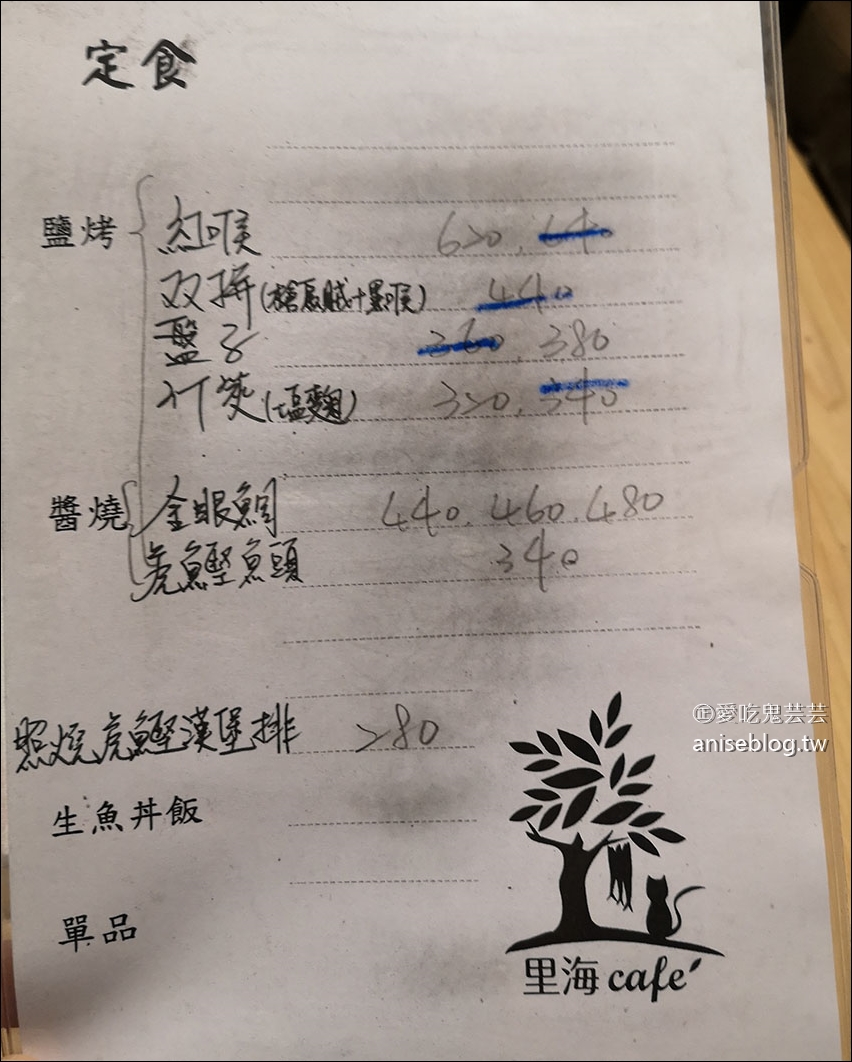 定食
鹽烤 紅喉 620, 640
双拼(槍烏賊+黑喉) 440
盤子 360, 380
竹筴(塩麴) 320, 340
醬燒 金眼鯛 440. 460. 480
虎鰹魚頭 340
照燒虎鰹漢堡排 280
生魚丼飯
單品
里海 cafe
愛吃鬼芸芸
aniseblog.tw